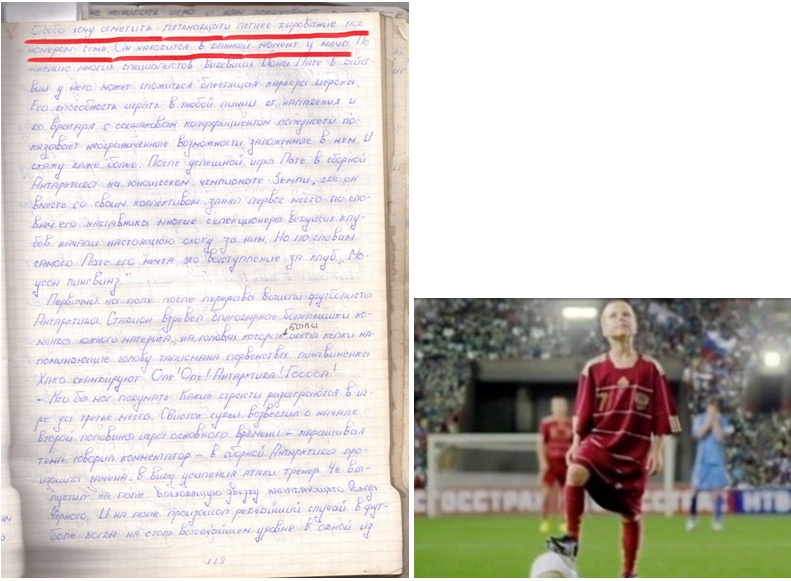 Особо хочу отметить пятьнадцати летнее дарование под
номером семь. Он находится в данный момент у мяча. По
мнению многих специалистов видевших Иона Пате в дейст-
вии у него может сложиться блестящая карьера игрока.
Его способность играть в любой линии от нападения и
до вратаря с одинаковым коэффициентом полезности по-
казывает неограниченные возможности заложенные в нем. И
скажу даже более. После успешной игры Пате в сборной
Антарктиды на юношеском чемпионате Земли, где он
вместе со своим коллективом занял первое место по сло-
вам его наставника многие селекционеры ведущих клу-
бов начали настоящую охоту за ним. Но по словам
самого Пате его мечта это выступление за клуб „Му-
усон пингвинз"
Первыми на поле после перерыва вышли футболисты
Антарктиды. Стадион взревел благодарные болельщики ко-
манды южного материка, на головах которых были одеты кепки на-
поминающие голову талисмана первенства пингвиненка
Хако скандируют Оле! Оле! Антарктида! Гооол!
- Кто бы мог подумать какие страсти разыграются в иг-
ре за третье место. Свисток судьи возвестил о начале
второй половины игры основного времени -
тема говорил комментатор - в сборной Антарктиды про-
изошла замена. В виду усиления атаки тренер Че вы-
пустил на поле восходящую звезду
Черного. И на поле произошел редчайший случай в фут-
боле когда на столь высочайшем уровне в одной из
119
7
ОССТРАХ
НТВ